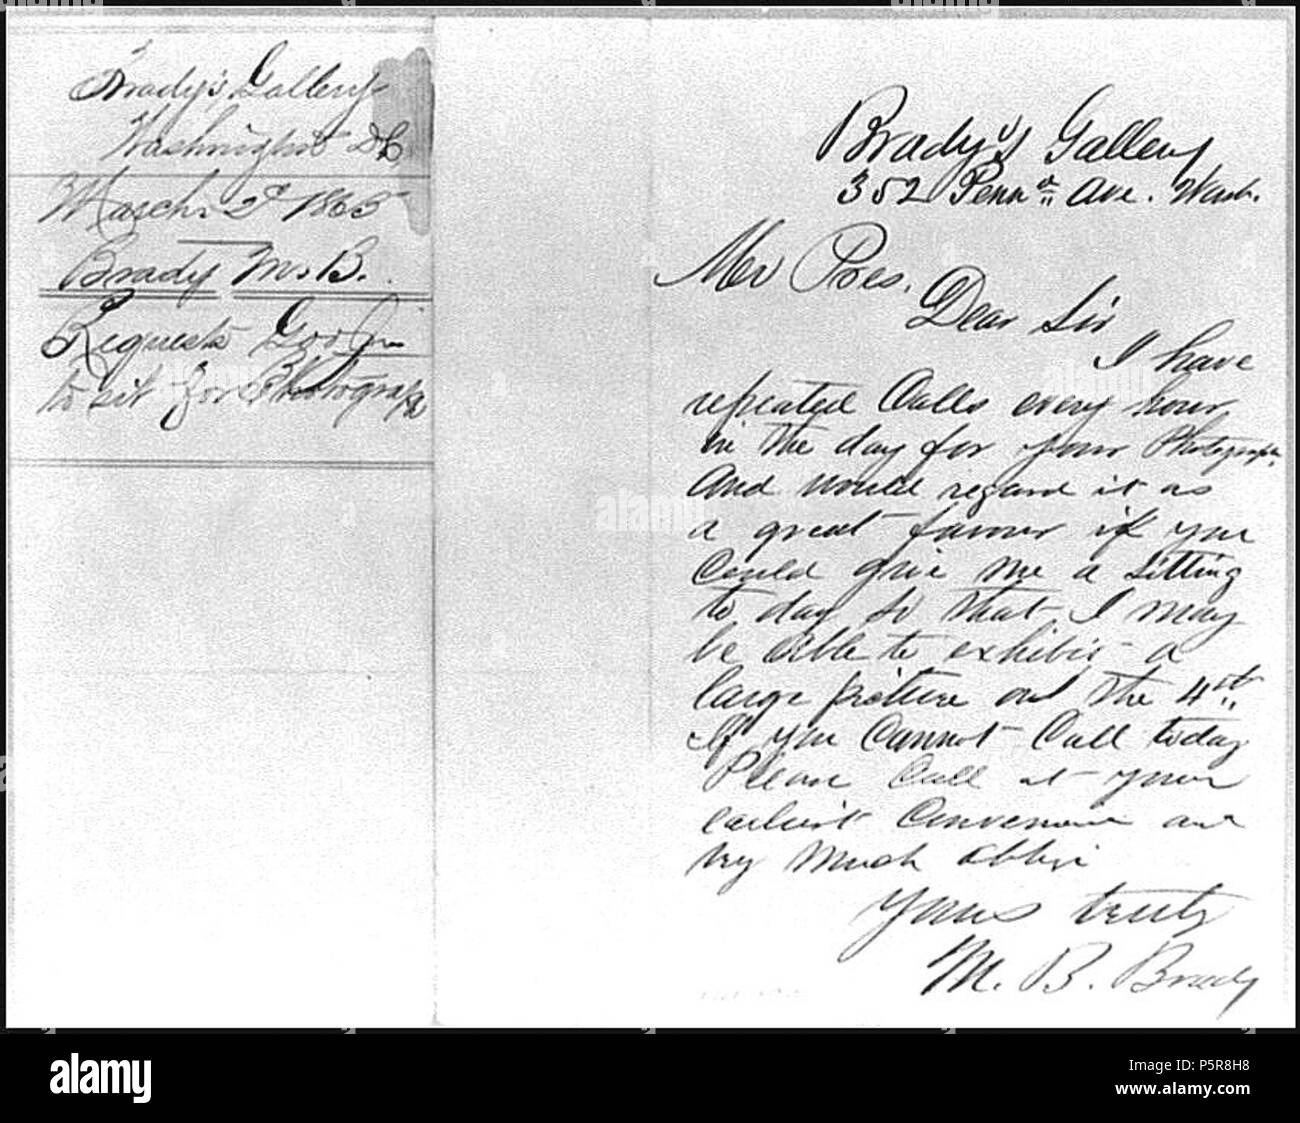 Brady's Gallery
Washington DC
March 2d 1865
Brady M. B.
Requests
to sit for Photograph
Brady's Gallery
352 Penna Ave. Wash.
Mr Pres.
Dear Sir
I have
repeated Calls every hour
in the day for your Photograph
and would regard it as
a great favour if you
Could give me a sitting
to day so that I may
be able to exhibit a
large picture on the 4th.
If you Cannot Call today
Please Call at your
earliest Convenience and
very Much oblige
Yours truly
M. B. Brady
alamy
alamy
alamy
Image ID: P5R8H8
www.alamy.com